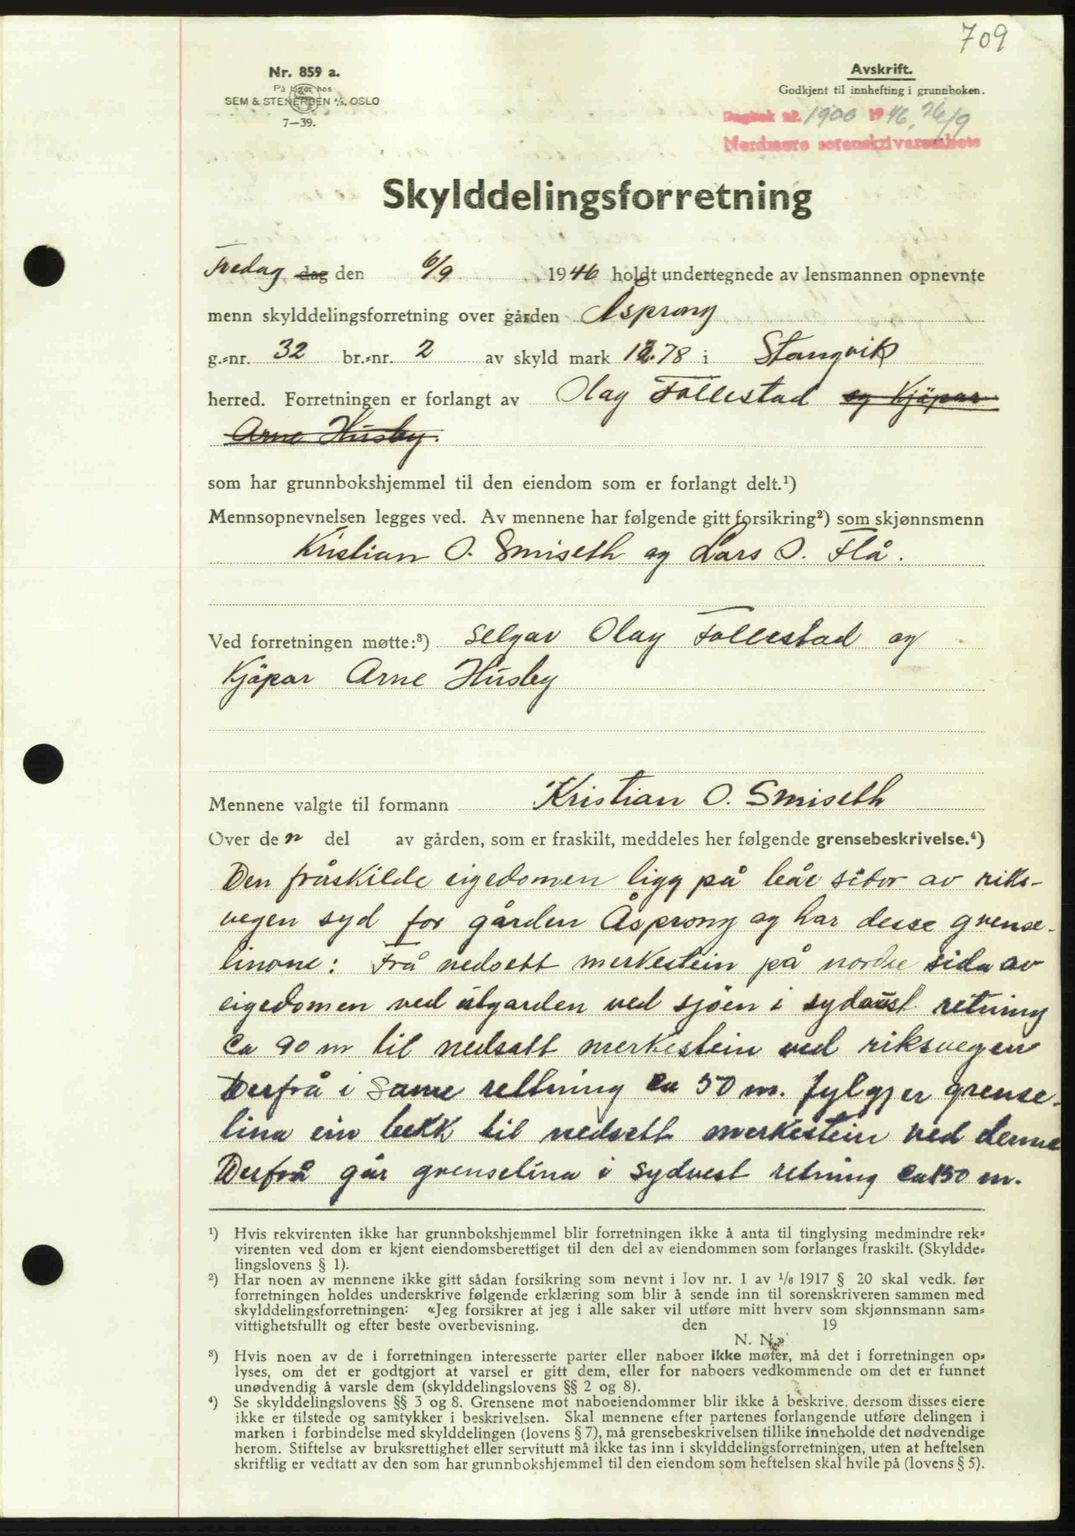 709
Nr. 859 a.
På lager hos
SEM & STENERSEN A/S, OSLO
7—39.
Avskrift.
Godkjent til innhefting i grunnboken.
Dagbok nr. 1900 1946, 26/9
Nordmøre sorenskriverembete
Skylddelingsforretning
Fredag dag den 6/9 1946 holdt undertegnede av lensmannen opnevnte
menn skylddelingsforretning over gården Åsprong
g.-nr. 32 br.-nr. 2 av skyld mark 12.78 i Stangvik
herred. Forretningen er forlangt av Olay Follestad og Kjøpar
Arne Husby.
som har grunnbokshjemmel til den eiendom som er forlangt delt.¹)
Mennsopnevnelsen legges ved. Av mennene har følgende gitt forsikring²) som skjønnsmenn
Kristian O. Smiseth og Lars O. Flå.
Ved forretningen møtte:³) Selgar Olay Follestad og
Kjøpar Arne Husby
Mennene valgte til formann Kristian O. Smiseth
Over den del av gården, som er fraskilt, meddeles her følgende grensebeskrivelse.⁴)
Den fråskilde eigedomen ligg på båe sidor av riks-
vegen syd for gården Åsprong og har desse grense-
linone: Frå nedsett merkestein på nordre sida av
eigedomen ved utgarden ved sjøen i sydaust retning
ca 90 m til nedsatt merkestein ved riksvegen
Derfrå i same rettning ca 50 m. fylgjer grense-
lina ein bekk til nedsett merkestein ved denne
Derfrå går grenselina i sydvest retning ca 150 m.
¹) Hvis rekvirenten ikke har grunnbokshjemmel blir forretningen ikke å anta til tinglysing medmindre rek-
virenten ved dom er kjent eiendomsberettiget til den del av eiendommen som forlanges fraskilt. (Skyldde-
lingslovens § 1).
²) Har noen av mennene ikke gitt sådan forsikring som nevnt i lov nr. 1 av 1/6 1917 § 20 skal vedk. før
forretningen holdes underskrive følgende erklæring som blir å sende inn til sorenskriveren sammen med
skylddelingsforretningen: «Jeg forsikrer at jeg i alle saker vil utføre mitt hverv som skjønnsmann sam-
vittighetsfullt og efter beste overbevisning. den 19
N. N.»
³) Hvis noen av de i forretningen interesserte parter eller naboer ikke møter, må det i forretningen op-
lyses, om det er godtgjort at varsel er gitt dem, eller for naboers vedkommende om det er funnet
unødvendig å varsle dem (skylddelingslovens §§ 2 og 8).
⁴) Se skylddelingslovens §§ 3 og 8. Grensene mot naboeiendommer blir ikke å beskrive, dersom disses eiere
ikke er tilstede og samtykker i beskrivelsen. Skal mennene efter partenes forlangende utføre delingen i
marken i forbindelse med skylddelingen (lovens § 7), må grensebeskrivelsen tillike inneholde det nødvendige
herom. Stiftelse av bruksrettighet eller servitutt må ikke tas inn i skylddelingsforretningen, uten at heftelsen
skriftlig er vedtatt av den som har grunnbokshjemmel til den eiendom som heftelsen skal hvile på (lovens § 5).